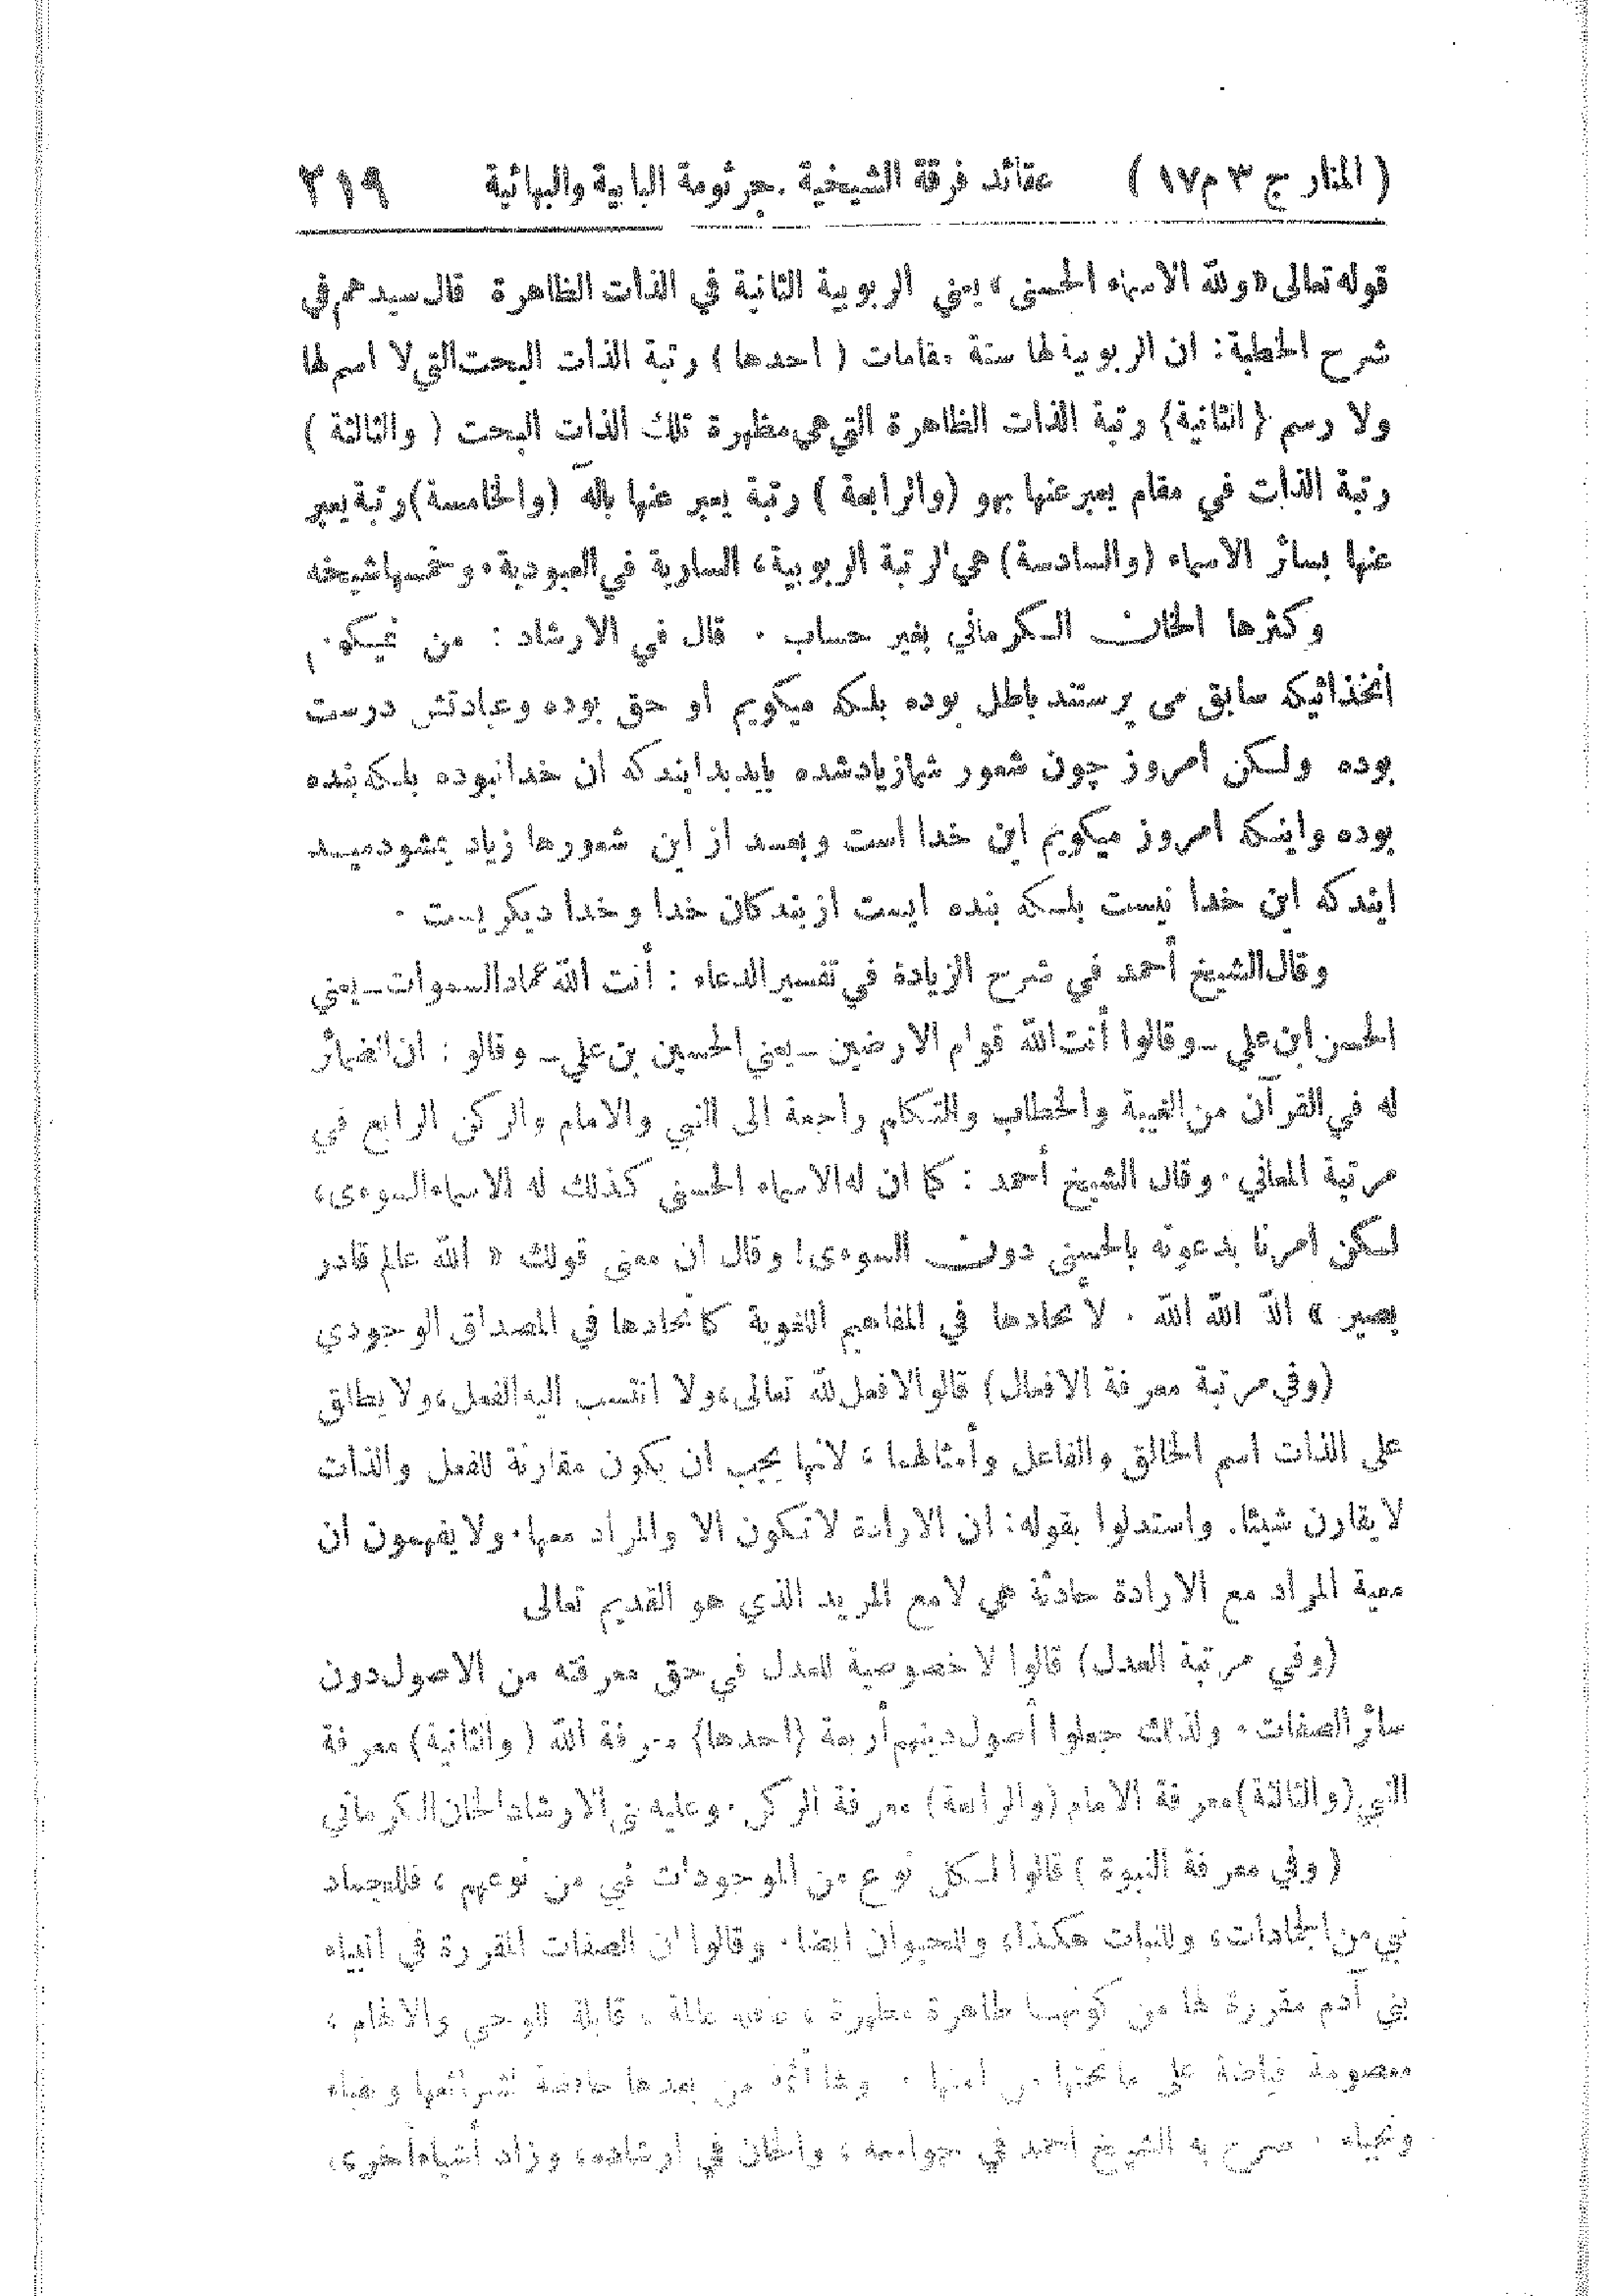 ( المنار ج ٣ م ١٧ ) عقائد فرقة الشيخية . جرثومة البابية والبهائية ٢١٩
قوله تعالى « ولله الاسماء الحسنى » يعني الربوبية الثانية في الذات الظاهرة قال سيدهم في
شرح الخطبة : ان الربوبية لها ستة مقامات ( احدها ) رتبة الذات البحت التي لا اسم لها
ولا رسم ( الثانية ) رتبة الذات الظاهرة التي هي مظهرة تلك الذات البحت ( والثالثة )
رتبة الذات في مقام يعبر عنها بهو (والرابعة ) رتبة يعبر عنها بالله (والخامسة) رتبة يعبر
عنها بسائر الاسماء (والسادسة) هي الرتبة الربوبية ، السارية في العبودية . وخمسها شيخه
وكثرها الخان الكرماني بغير حساب . قال في الارشاد : من
انخدائيكه سابق مى پرستند باطل بوده بلكه ميكويم او حق بوده وعبادتش درست
بوده ولكن امروز چون شعور شما زياد شده بايد بدانيد كه ان خدا نبوده بلكه بنده
بوده واينكه امروز ميكويم اين خدا است وبعد از اين شعورها زياد
ايند كه اين خدا نيست بلكه بنده ايست از بندكان خدا وخدا ديكريست .
وقال الشيخ أحمد في شرح الزيادة في تفسير الدعاء : أنت الله عماد السموات ــ يعني
الحسن ابن علي ــ وقالوا أنت الله قوام الارضين ــ يعني الحسين بن علي ــ وقالو : ان الضمائر
له في القرآن من الغيبة والخطاب والتكلم راجعة الى النبي والامام والركن الرابع في
مرتبة المعاني . وقال الشيخ أحمد : كما ان له الاسماء الحسنى كذلك له الاسماء السوءى ،
لكن امرنا بدعوته بالحسنى دون السوءى ! وقال ان معنى قولك « الله عالم قادر
بصير » الله الله الله . لاتحادها في المفاهيم اللغوية كاتحادها في المصداق الوجودي
(وفي مرتبة معرفة الافعال) قالوا لا فعل لله تعالى ، ولا انتسب اليه الفعل ، ولا يطلق
على الذات اسم الخالق والفاعل وأمثالهما ؛ لانها يجب ان يكون مقارنة للفعل والذات
لا يقارن شيئا . واستدلوا بقوله : ان الارادة لا تكون الا والمراد معها . ولا يفهمون ان
معية المراد مع الارادة حادثة هي لا مع المريد الذي هو القديم تعالى
(وفي مرتبة العدل) قالوا لا خصوصية للعدل في حق معرفته من الاصول دون
سائر الصفات . ولذلك جعلوا أصول دينهم أربعة (احدها) معرفة الله ( والثانية) معرفة
النبي (والثالثة) معرفة الامام (والرابعة) معرفة الركن . وعليه في الارشاد الخان الكرماني
( وفي معرفة النبوة ) قالوا لكل نوع من الموجودات نبي من نوعهم ، فللجماد
نبي من الجمادات ، وللنبات هكذا ، وللحيوان ايضا . وقالوا ان الصفات المقررة في انبياء
بني آدم مقررة لها من كونها طاهرة مطهرة ، قابلة للوحي والالهام ،
معصومة على ما تحتها من امتها . ولها أئمة من بعدها حافظة لشرائعها ونقباء
ونجباء . صرح به الشيخ احمد في جوامعه ، والخان في ارشاده ، وزاد أشياء أخرى ،